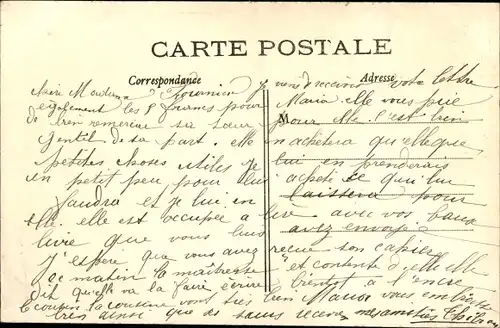 CARTE POSTALE
Correspondance Adresse
Chère Madame Fournier je viens de recevoir votre lettre
également les 5 francs pour Maria elle vous prie
de bien remercier sa sœur pour elle c'est bien
gentil de sa part. elle en achètera quelque
petites choses utiles je lui en prenderais
un petit peu pour lui acheté ce qui lui
faudra et je lui en laissera pour
elle. elle est occupée a lire avec vos
livre que vous lui avez envoyé
J'espère que vous avez reçue son cahier
ce matin la maîtresse et contente d'elle elle
dit qu'elle va la faire écrire bientôt a l'encre
la cousine vous très bien Maria vous embrasse
très ainsi que sa sœur recevez mes amitiés